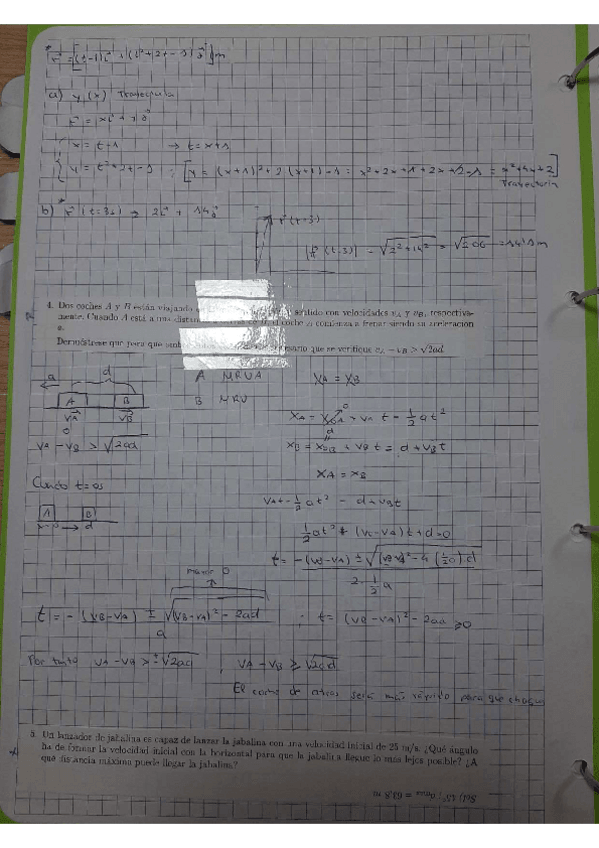 r⃗ = [(t-1)i⃗ + (t²+2t-1)j⃗] m
a) y(x) Trayectoria
r⃗ = xi⃗ + yj⃗
x = t-1 → t = x+1
y = t²+2t-1 : [y = (x+1)²+2(x+1)-1 = x²+2x+1+2x+2-1 = x²+4x+2]
Trayectoria
b) r⃗(t=3s) = 2i⃗ + 14j⃗ r⃗(t=3)
|r⃗(t=3)| = √2²+14² = √206 = 14'1 m
4. Dos coches A y B están viajando sentido con velocidades vA y vB, respectiva-
mente. Cuando A está a una distancia d el coche A comienza a frenar siendo su aceleración
a.
Demuéstrese que para que que se verifique vA − vB > √2ad
a d A MRUA XA = XB
A B B MRU
VA VB XA = X0A + VA t - 1/2 at²
0 d
VA - VB > √2ad XB = X0B + VB t = d + VB t
XA = XB
Cuando t=0s VAt - 1/2 at² = d + VBt
A B 1/2 at² + (VB-VA)t + d = 0
d t = -(VB-VA) ± √(VB-VA)² - 4(1/2 a).d
2 · 1/2 a
mayor 0
t = -(VB-VA) ± √(VB-VA)² - 2ad ; t = (VB-VA)² - 2ad ≥ 0
a
Por tanto VA - VB > ±√2ad , VA - VB ≥ √2ad
El coche de atras será más rápido para que choquen
5. Un lanzador de jabalina es capaz de lanzar la jabalina con una velocidad inicial de 25 m/s. ¿Qué ángulo
ha de formar la velocidad inicial con la horizontal para que la jabalina llegue lo más lejos posible? ¿A
qué distancia máxima puede llegar la jabalina?
Sol) 45°; Dmax = 63.8 m